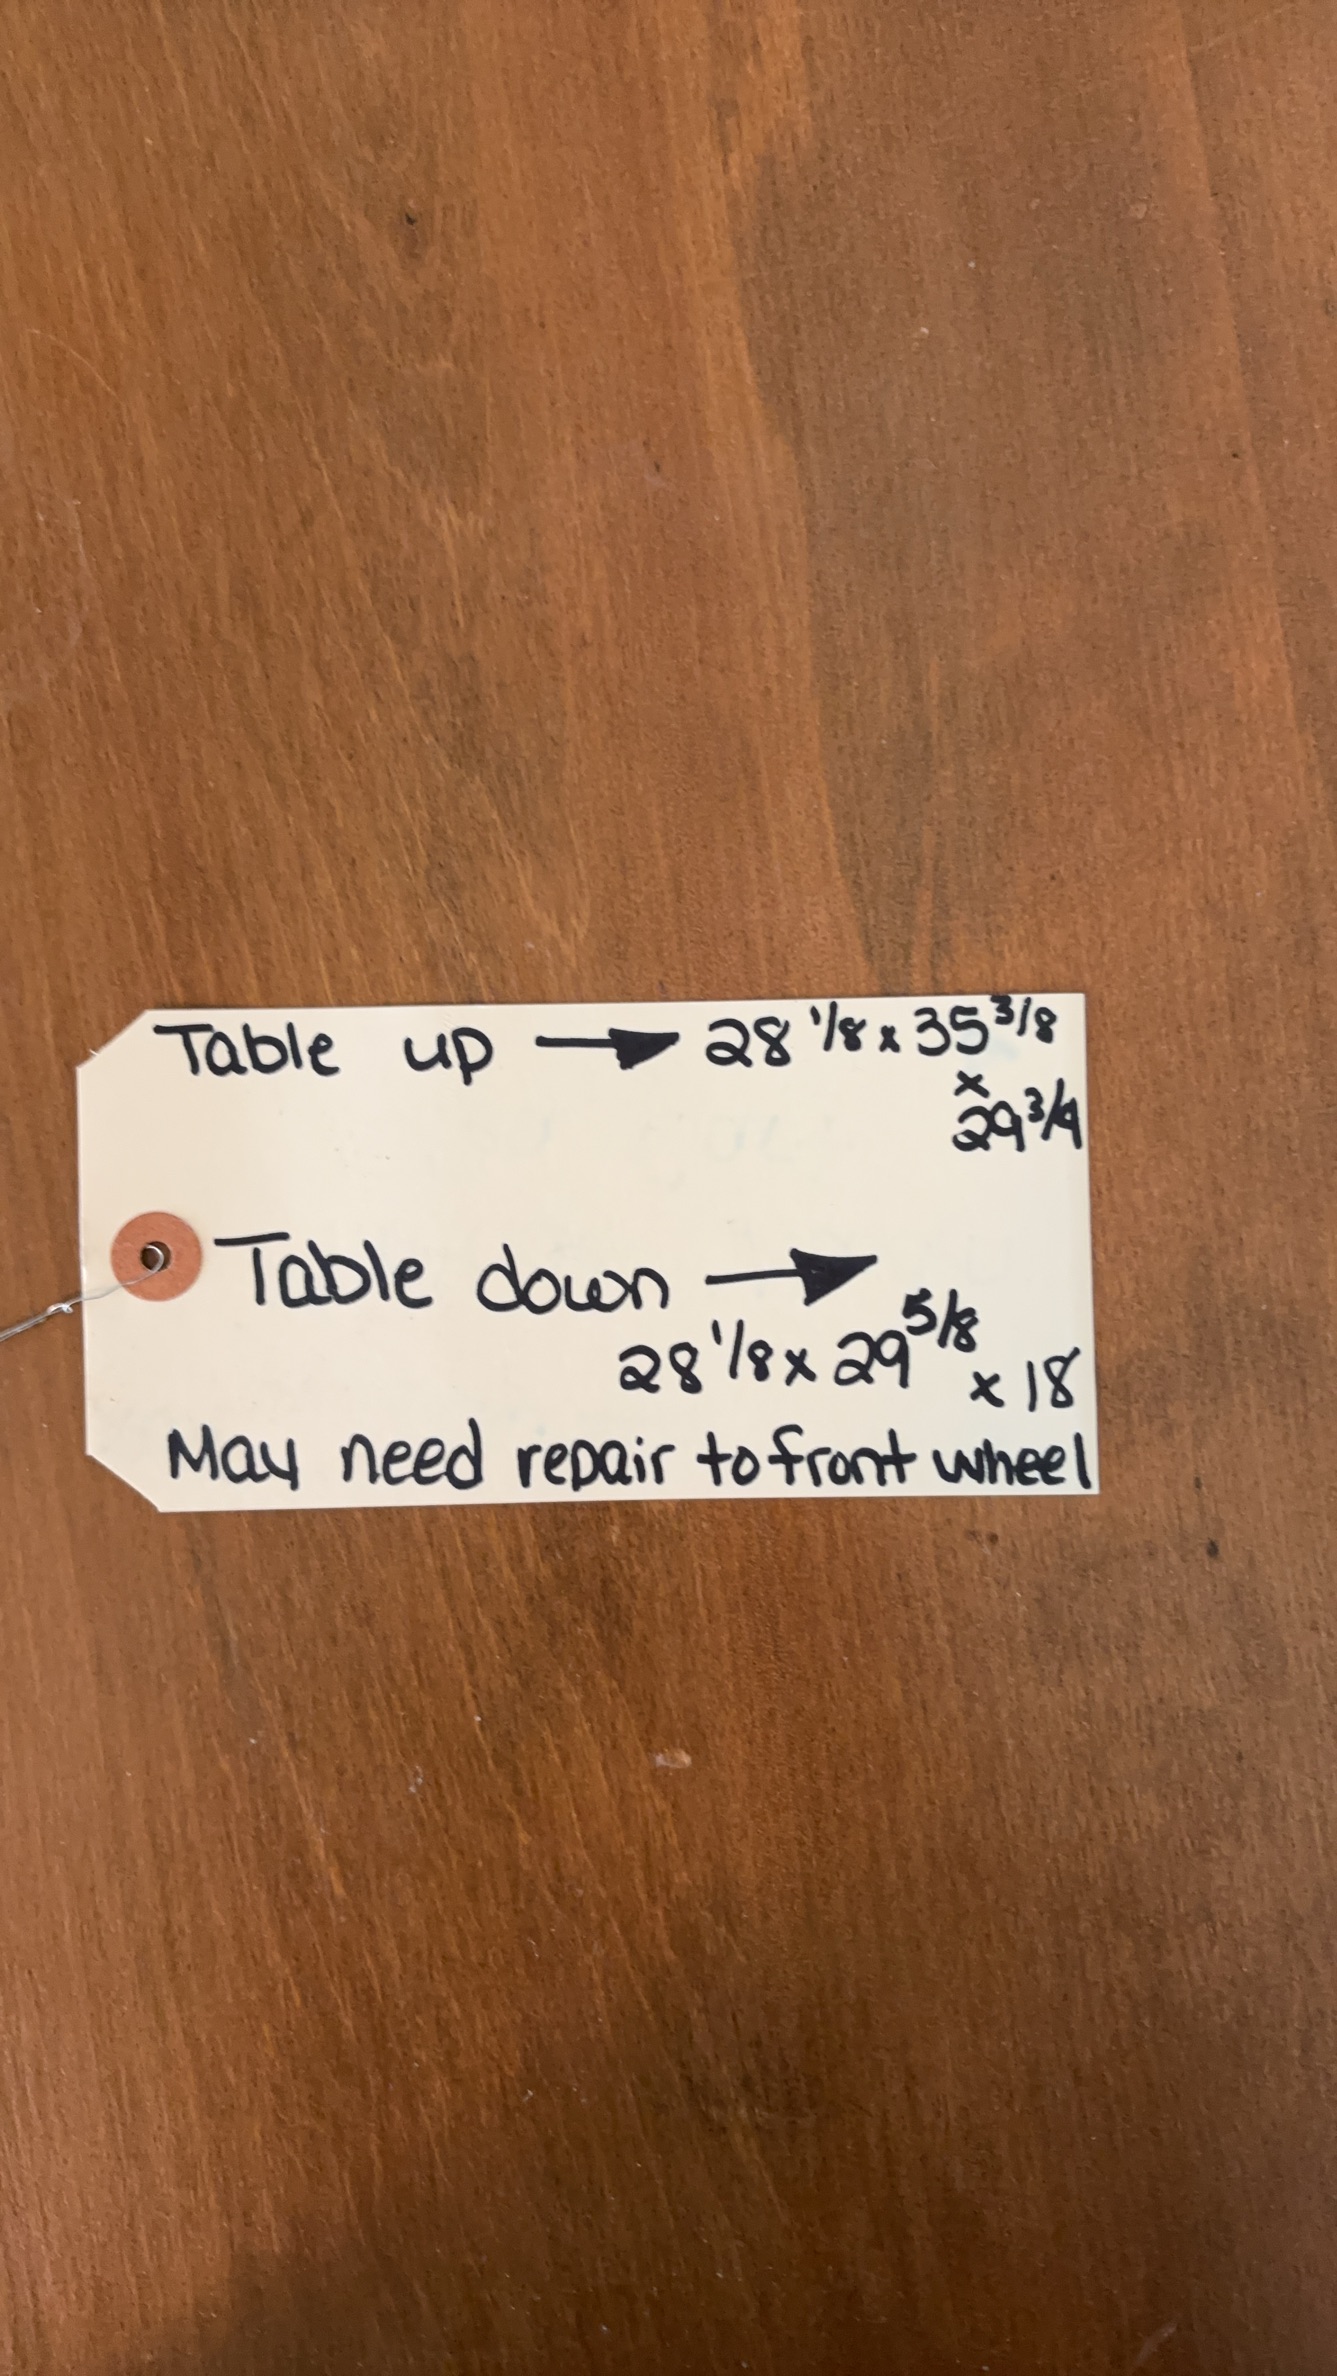 Table up → 28 1/8 x 35 3/8
x
29 3/4
Table down →
28 1/8 x 29 5/8
x 18
May need repair to front wheel